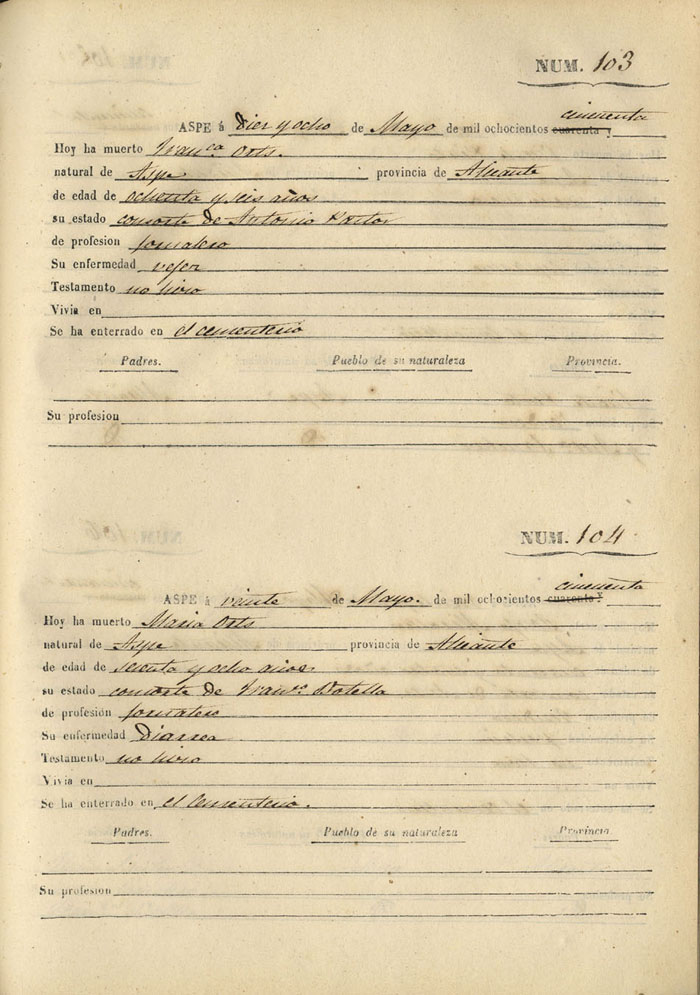 NUM. 103
cincuenta
ASPE á Diez y ocho de Mayo de mil ochocientos cuarenta y
Hoy ha muerto Fran.ca Orts.
natural de Aspe provincia de Alicante
de edad de ochenta y seis años
su estado consorte de Antonio Pastor
de profesion jornalero
Su enfermedad vejez
Testamento no hizo
Vivia en
Se ha enterrado en el cementerio
Padres. Pueblo de su naturaleza Provincia.
Su profesion
NUM. 104
cincuenta
ASPE á veinte de Mayo. de mil ochocientos cuarenta y
Hoy ha muerto Maria Orts
natural de Aspe provincia de Alicante
de edad de setenta y ocho años
su estado consorte de Fran.co Botella
de profesión jornalero
Su enfermedad Diarrea
Testamento no hizo
Vivia en
Se ha enterrado en el Cementerio.
Padres. Pueblo de su naturaleza Provincia.
Su profesion